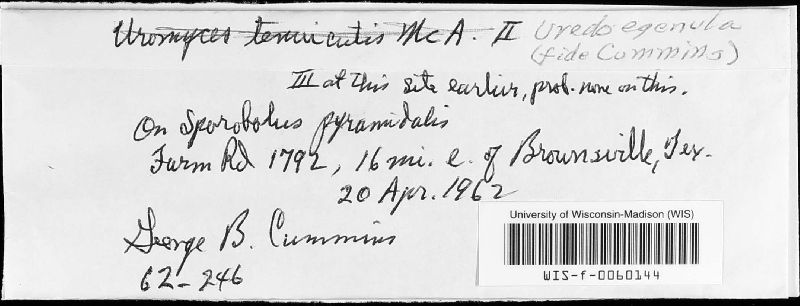 Uromyces tenuicutis McA. II Uredo egenula
(fide Cummins)
III at this site earlier, prob. none on this.
On Sporobolus pyramidalis
Farm Rd 1792, 16 mi. e. of Brownsville, Tex.
20 Apr. 1962
George B. Cummins
62-246
University of Wisconsin-Madison (WIS)
WIS-f-0060144